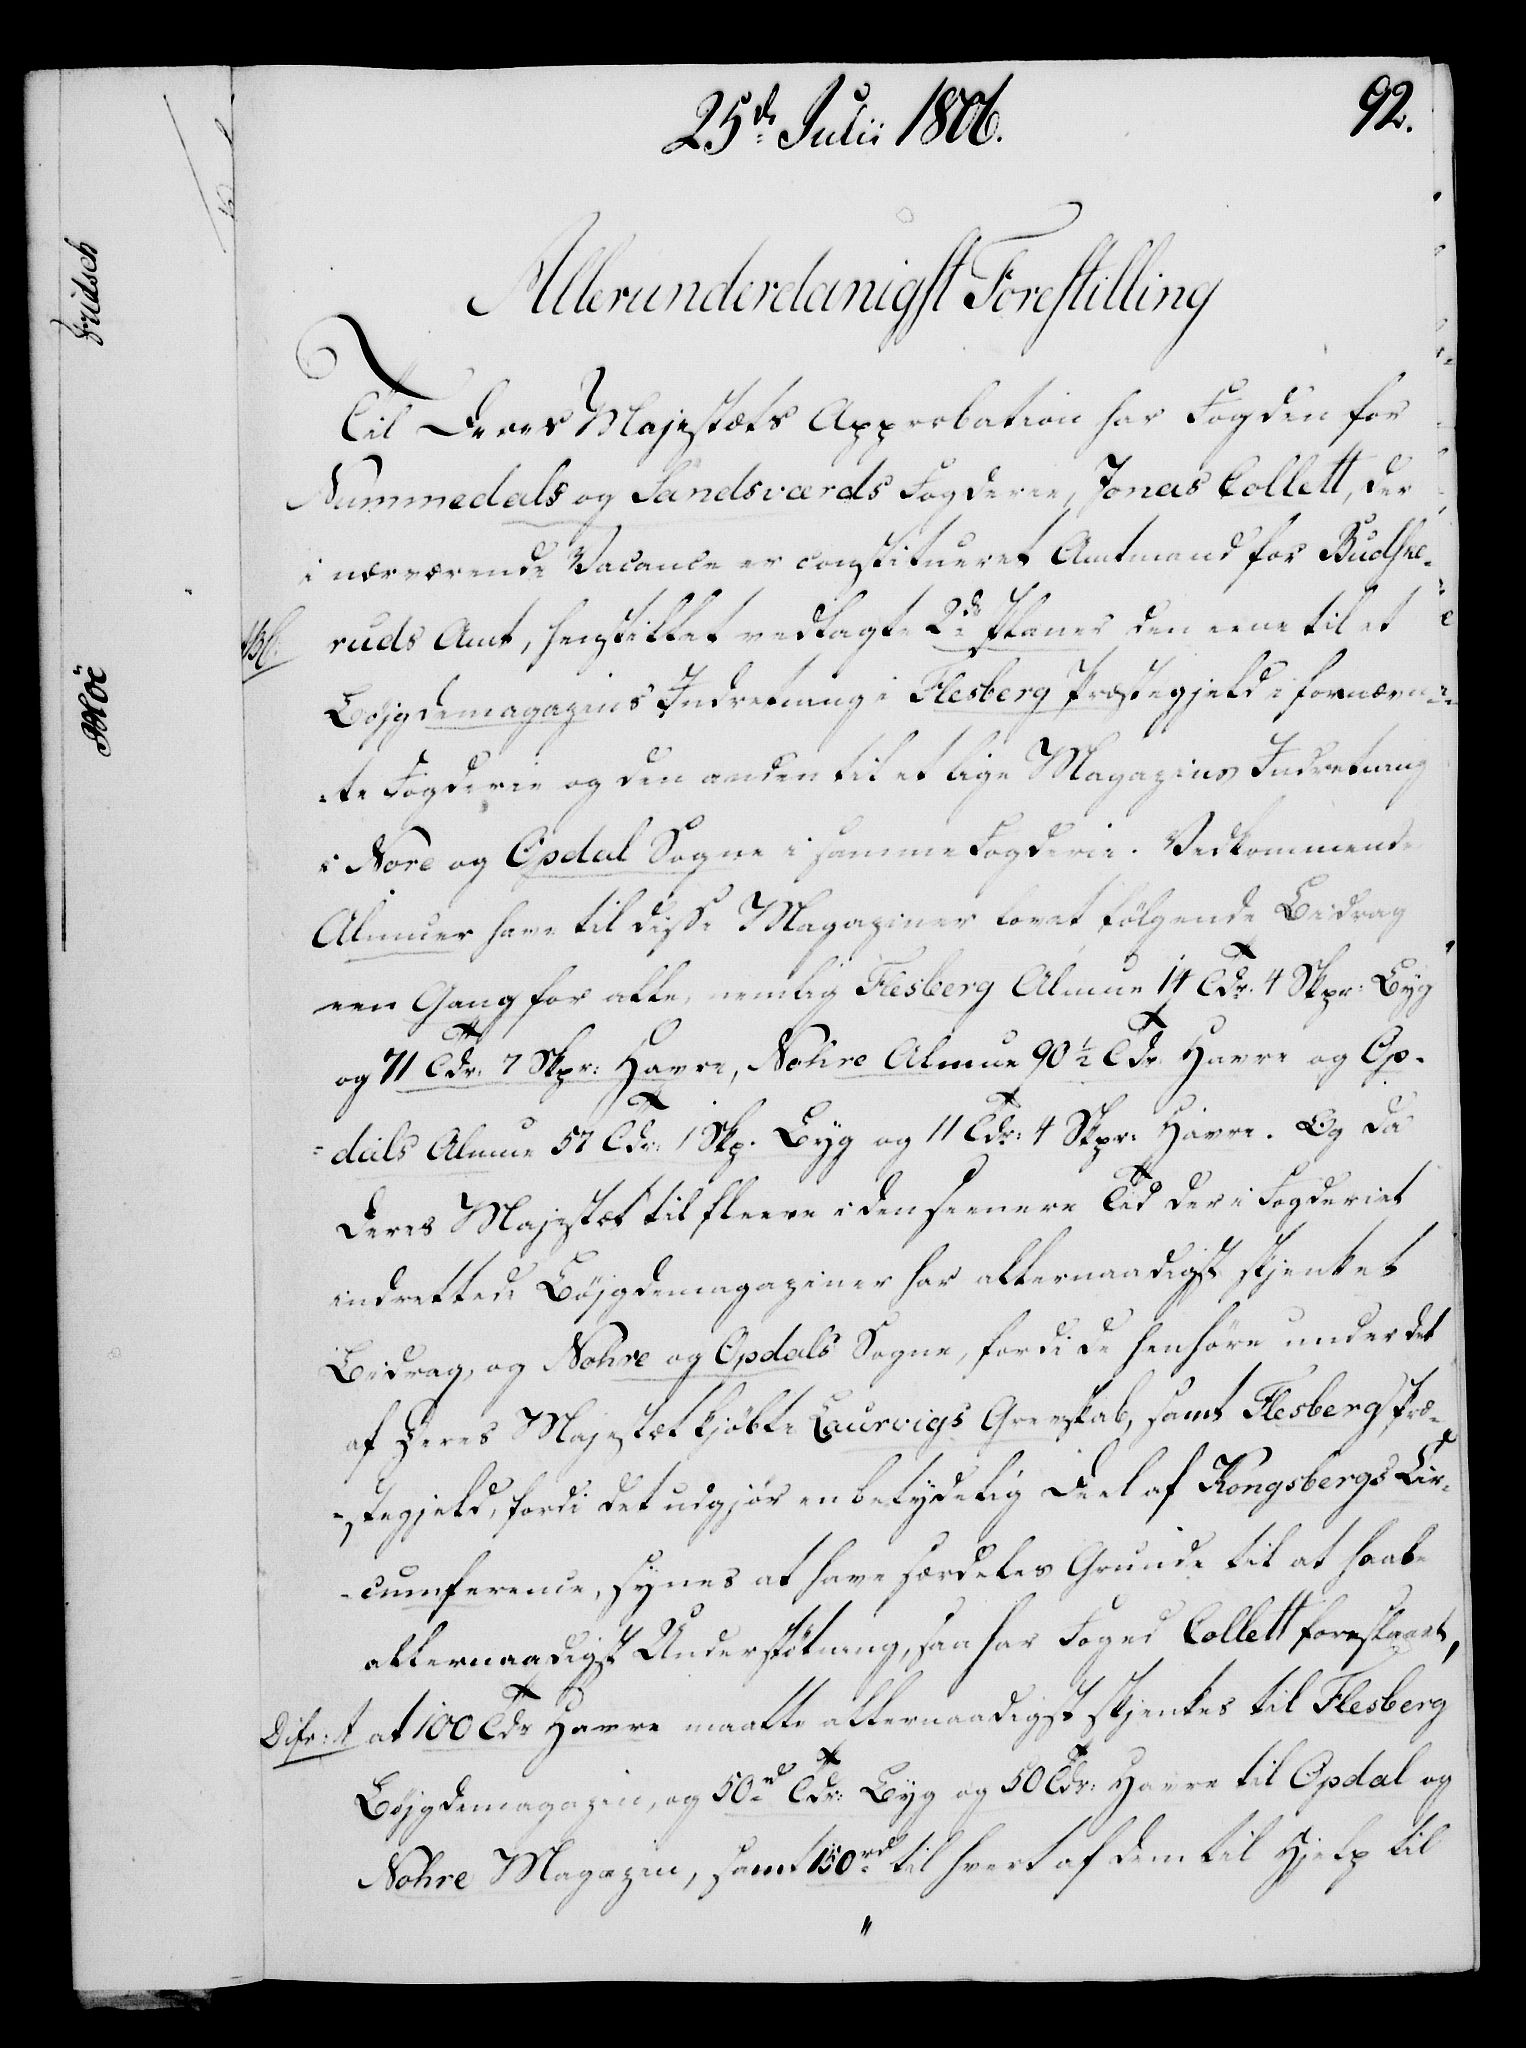 25de Julii 1806.
92.
Allerunderdanigst Forestilling
Til Deres Majestæts Approbation har Fogden for
Nummedals og Sandsværds Fogderie, Jonas Collett, der
i nærværende Vacance er constitueret Amtmand for Budske-
ruds Amt, henstillet vedlagte 2de Planer den eene til et
Böjgdemagazins Indretning i Flesberg Præstegjeld i fornævn-
-te Fogderie og den anden til et lige Magazins Indretning
i Nore og Opdal Sogne i samme Fogderie. Vedkommende
Almuer have til disse Magaziner lovet fölgende Bidrag
een Gang for alle, nemlig Flesberg Almue 14 Tdr. 4 Skpr: Byg
og 71 Tdr. 7 Skpr: Havre, Nohre Almue 90½ Tdr Havre og Op-
=dals Almue 57 Tdr: 1 Skp. Byg og 11 Tdr: 4 Skpr: Havre. Og da
Deres Majestæt til fleere i den seenere Tid der i Fogderiet
indrettede Böjgdemagaziner har allernaadigst skjenket
Bidrag, og Nohre og Opdals Sogne, fordi de henhöre under det
af Deres Majestæt kjöbte Laurvigs Grevskab, samt Flesberg Præ-
-stegjeld, fordi det udgjör en betydelig Deel af Kongsbergs Cir-
-cumference, synes at have særdeles Grunde til at haabe
allernaadigst Understötning, saa har Foged Collett foreslaaet,
at 100 Tdr Havre maatte allernaadigst skjenkes til Flesberg
Böjgdemagazin, og 50 Tdr: Byg og 50 Tdr: Havre til Opdal og
Nohre Magazin, samt 150rd til hvert af dem til Hjelp til
"
Fridsch
Moe